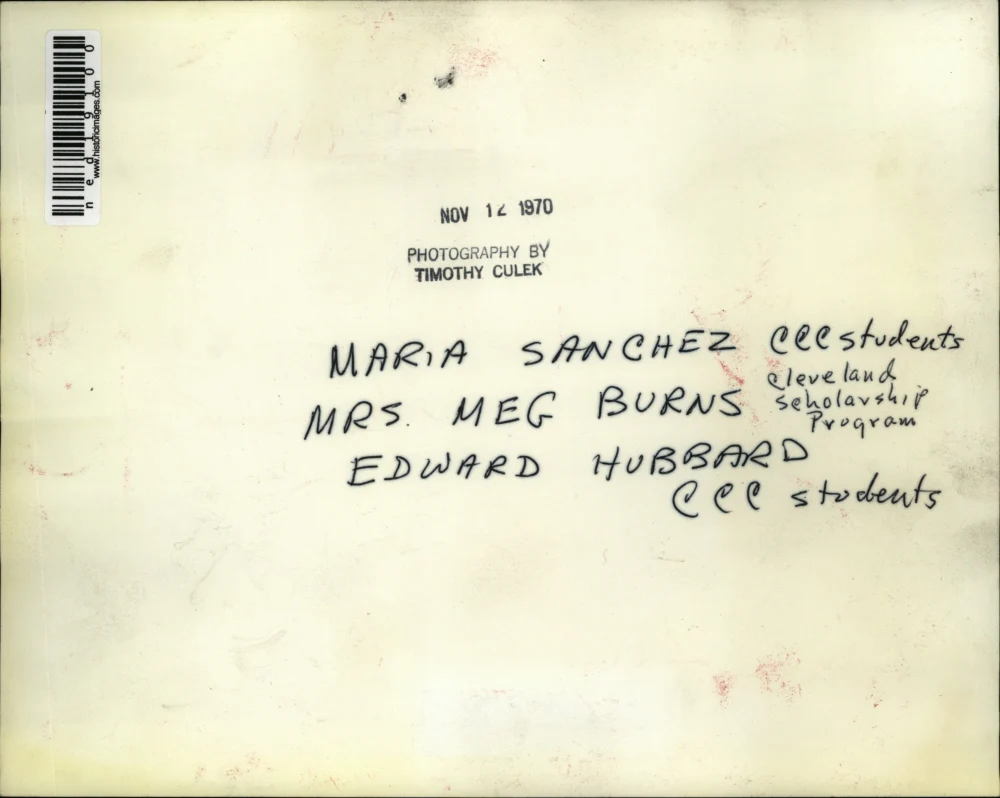 ned19100
www.historicimages.com
NOV 12 1970
PHOTOGRAPHY BY
TIMOTHY CULEK
MARIA SANCHEZ CCC students
MRS. MEG BURNS Cleveland
Scholarship
Program
EDWARD HUBBARD
CCC students